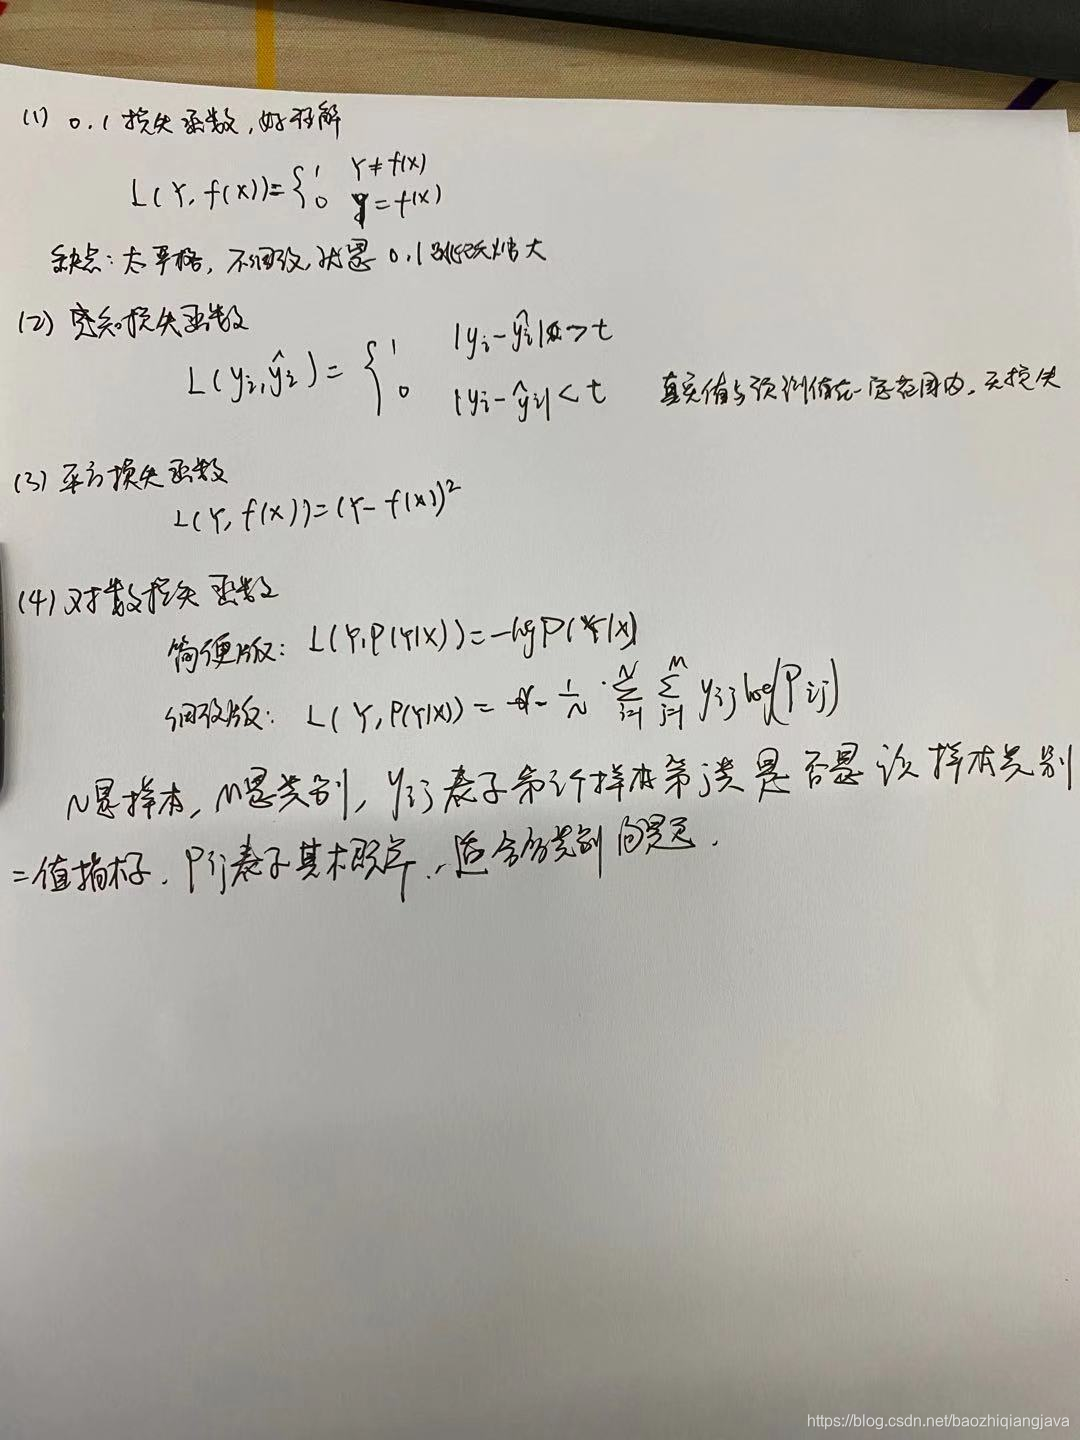 (1) 0.1损失函数,好理解
L(Y, f(x))={ 1 Y≠f(x)
0 y=f(x)
缺点:太严格,不细致,就是0.1
(2) 感知损失函数
L(yi,ŷi)={ 1 |yi-ŷi|>t
0 |yi-ŷi|<t 真实值与预测值在一定范围内,无损失
(3) 平方损失函数
L(Y, f(x))=(Y-f(x))²
(4) 对数损失函数
简便版: L(Y,P(Y|X))=-logP(Y|X)
细致版: L(Y,P(Y|X))= - 1/N · Σ(i=1→N) Σ(j=1→M) yij log(Pij)
N是样本, M是类别, yij表示第i个样本第j类是否是该样本类别
=值指标, Pij表示其概率, 适合分类别问题.
https://blog.csdn.net/baozhiqiangjava